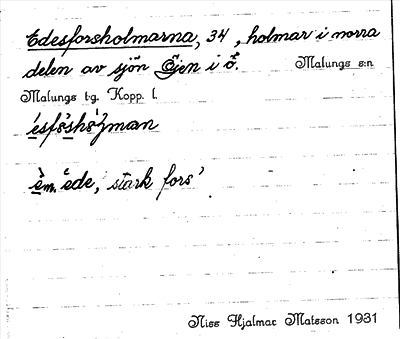 Edesforsholmarna, 34, holmar i norra
delen av sjön Öjen i ö. Malungs s:n
Malungs t-g. Kopp. l.
èm. ede, 'stark fors'
Niss Hjalmar Matsson 1931